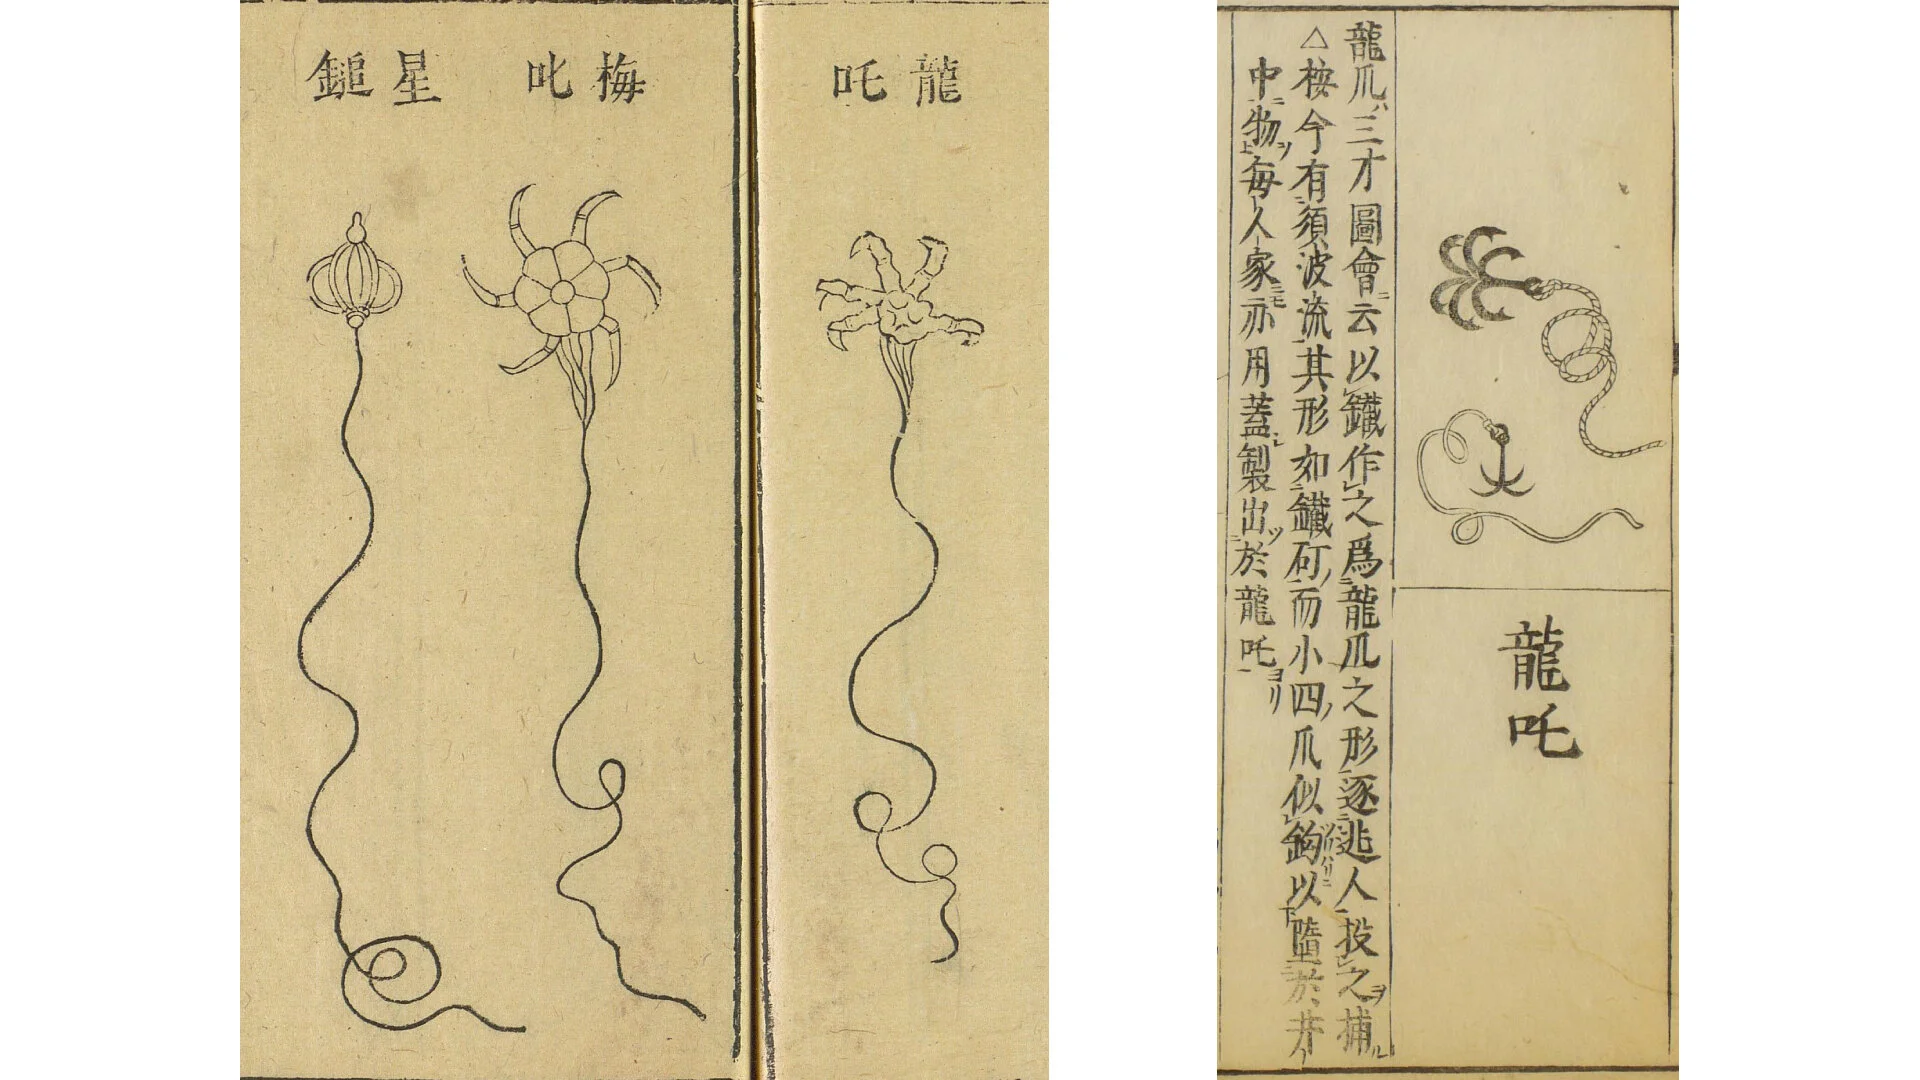 龍吒
梅叱
星鎚
龍吒
龍爪三才圖會云以鐵作之爲龍爪之形逐逃人投之捕
△桉今有須波流其形如鐵矴而小四爪似鉤以墮於井
中物每人家亦用蓋製出於龍吒